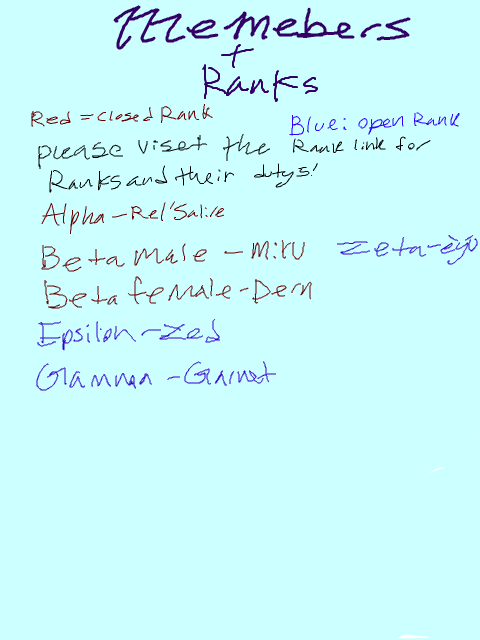 Memebers
+
Ranks
Red = closed Rank
Blue: open Rank
please viset the Rank link for
Ranks and their dutys!
Alpha - Rel'Salire
Beta male - Miru
Zeta - èÿu
Beta female - Dern
Epsilon - Zed
Gamman - Garnet